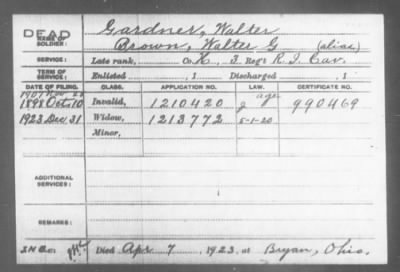 DEAD Gardner, Walter
NAME OF SOLDIER: Brown, Walter G (alias)
SERVICE: Late rank, Co. K, 3 Reg't R. I. Cav.
TERM OF SERVICE: Enlisted , 1 Discharged , 1
DATE OF FILING. CLASS. APPLICATION NO. LAW. CERTIFICATE NO.
1907 Nov 20 age
1898 Oct 10 Invalid, 1210420 g 990469
1923 Dec 31 Widow, 1213772 5-1-20
Minor,
ADDITIONAL SERVICES:
REMARKS:
Died Apr 7, 1923, at Bryan, Ohio.